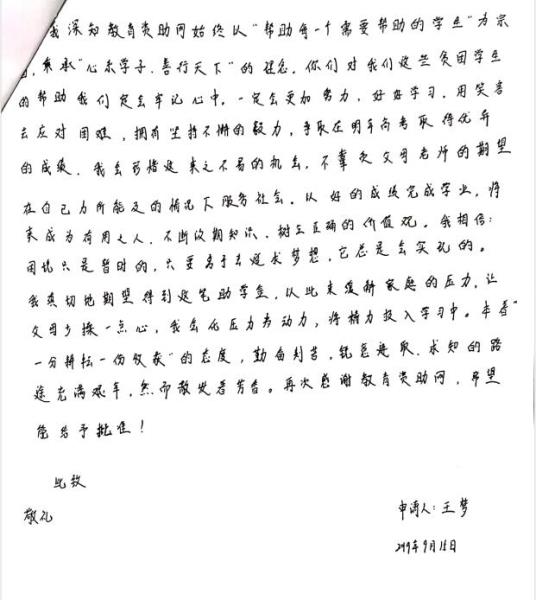 我深知教育资助网始终以“帮助每一个需要帮助的学生”为宗
,秉承“心系学子,善行天下”的理念。你们对我们这些贫困学生
的帮助我们定会牢记心中。一定会更加努力,好好学习,用笑容
去应对困难,拥有坚持不懈的毅力,争取在明年高考取得优异
的成绩。我会珍惜这来之不易的机会,不辜负父母老师的期望
在自己力所能及的情况下服务社会。以好的成绩完成学业,将
来成为有用之人,不断汲取知识,树立正确的价值观。我相信:
困境只是暂时的,只要勇于去追求梦想,它总是会实现的。
我真切地期望得到这笔助学金,以此来缓解家庭的压力,让
父母少操一点心,我会化压力为动力,将精力投入学习中。本着“
一分耕耘一份收获”的态度,勤奋刻苦,锐意进取。求知的路
途充满艰辛,然而散发着芳香。再次感谢教育资助网,希望
能给予批准!
此致
敬礼
申请人:王梦
9月15日